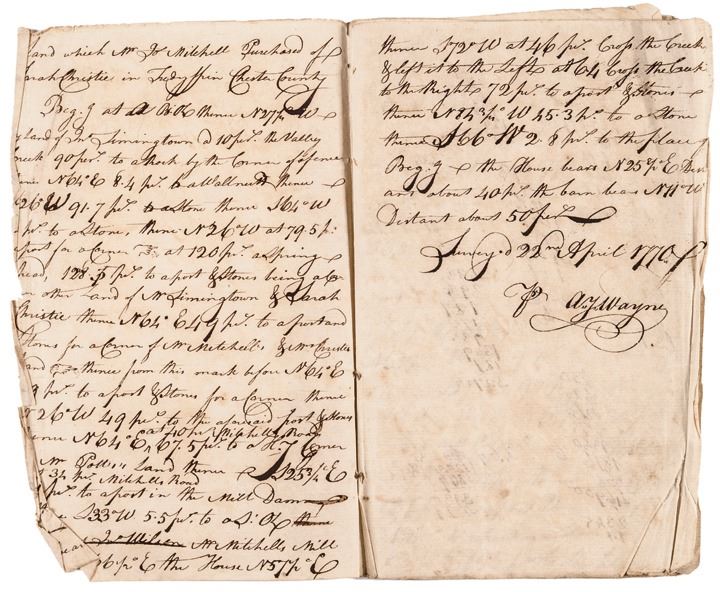 Land which Mr. Jo: Mitchell Purchased of
Sarah Christie in Tredyffrin Chester County
Beg.g at a B:Ok thence N 27½° W
Land of Limingtown 10 pr. the Valley
Creek 90 pr. to a Rock by the Corner of a fence
N 64° E 8.4 pr. to a Wallnutt thence
26° W 91.7 pr. to a Stone thence S 64° W
pr. to a Stone, thence N 26° W at 79.5 p:
a port for a Corner at 120 pr. a Spring
head, 128.5 pr. to a port & Stones being a Cor
other Land of Mr. Limingtown & Sarah
Christie thence N 64° E 49 pr. to a port and
Stones for a Corner of Mr. Mitchells & Mrs. Christies
Land thence from this mark before N 64° E
9 pr. to a port & Stones for a Corner thence
26° W 49 pr. to the aforesaid port & Stones
at 40 pr. Mitchells Road
thence N 64° E, 67.5 pr. to a Corner
Mr. Potts's Land thence S 25¾° E
34 pr. Mitchells Road
pr. to a port in the Mill Damm
S 33° W 5.5 pr. to a S: Ok thence
Jo: Wilson Mr. Mitchells Mill
6½° E the House N 57½° E
thence S 72° W at 46 pr. Cross the Creek
& left it to the Left at 64 Cross the Creek
to the Right 72 pr. to a port & Stones
thence N 84¾° W 45.3 pr. to a Stone
thence S 66° W 2.8 pr. to the place
Beg.g the House bears N 25½° E Dist
ant about 40 pr. the barn bears N 11° W
Distant about 50 pr.
Survey'd 22nd April 1770
Pr Ay. Wayne